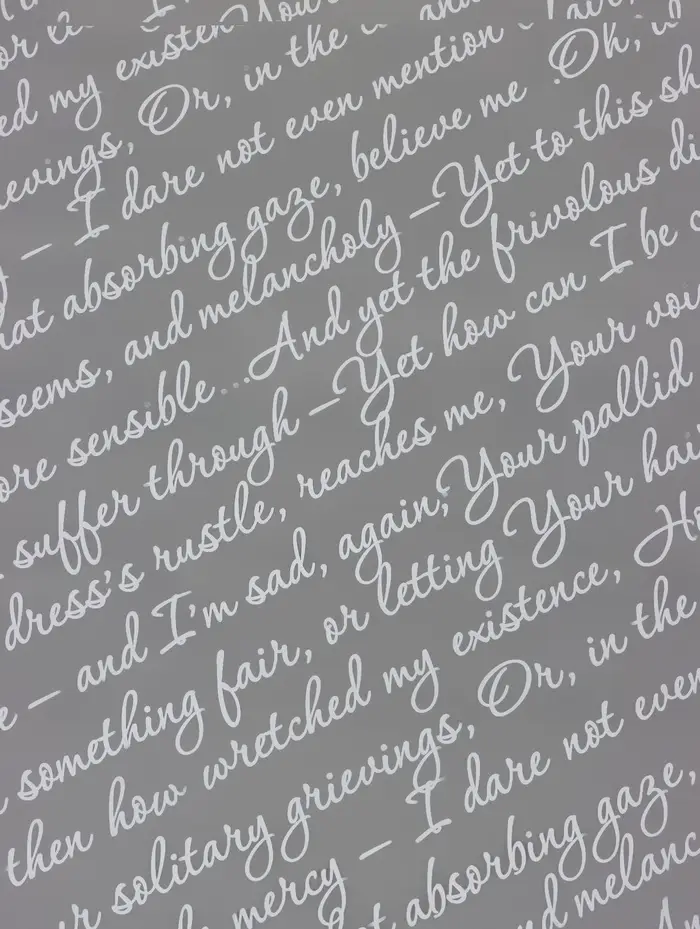 or
ed my existen Your
ievings, Or, in the an
— I dare not even mention
hat absorbing gaze, believe me. Oh, i
seems, and melancholy — Yet to this sh
ore sensible...And yet the frivolous di
suffer through — Yet how can I be c
dress's rustle, reaches me, Your voi
e — and I'm sad, again, Your pallid
something fair, or letting Your hair
then how wretched my existence, Ho
r solitary grievings, Or, in the
mercy — I dare not even
t absorbing gaze,
d melanc
An